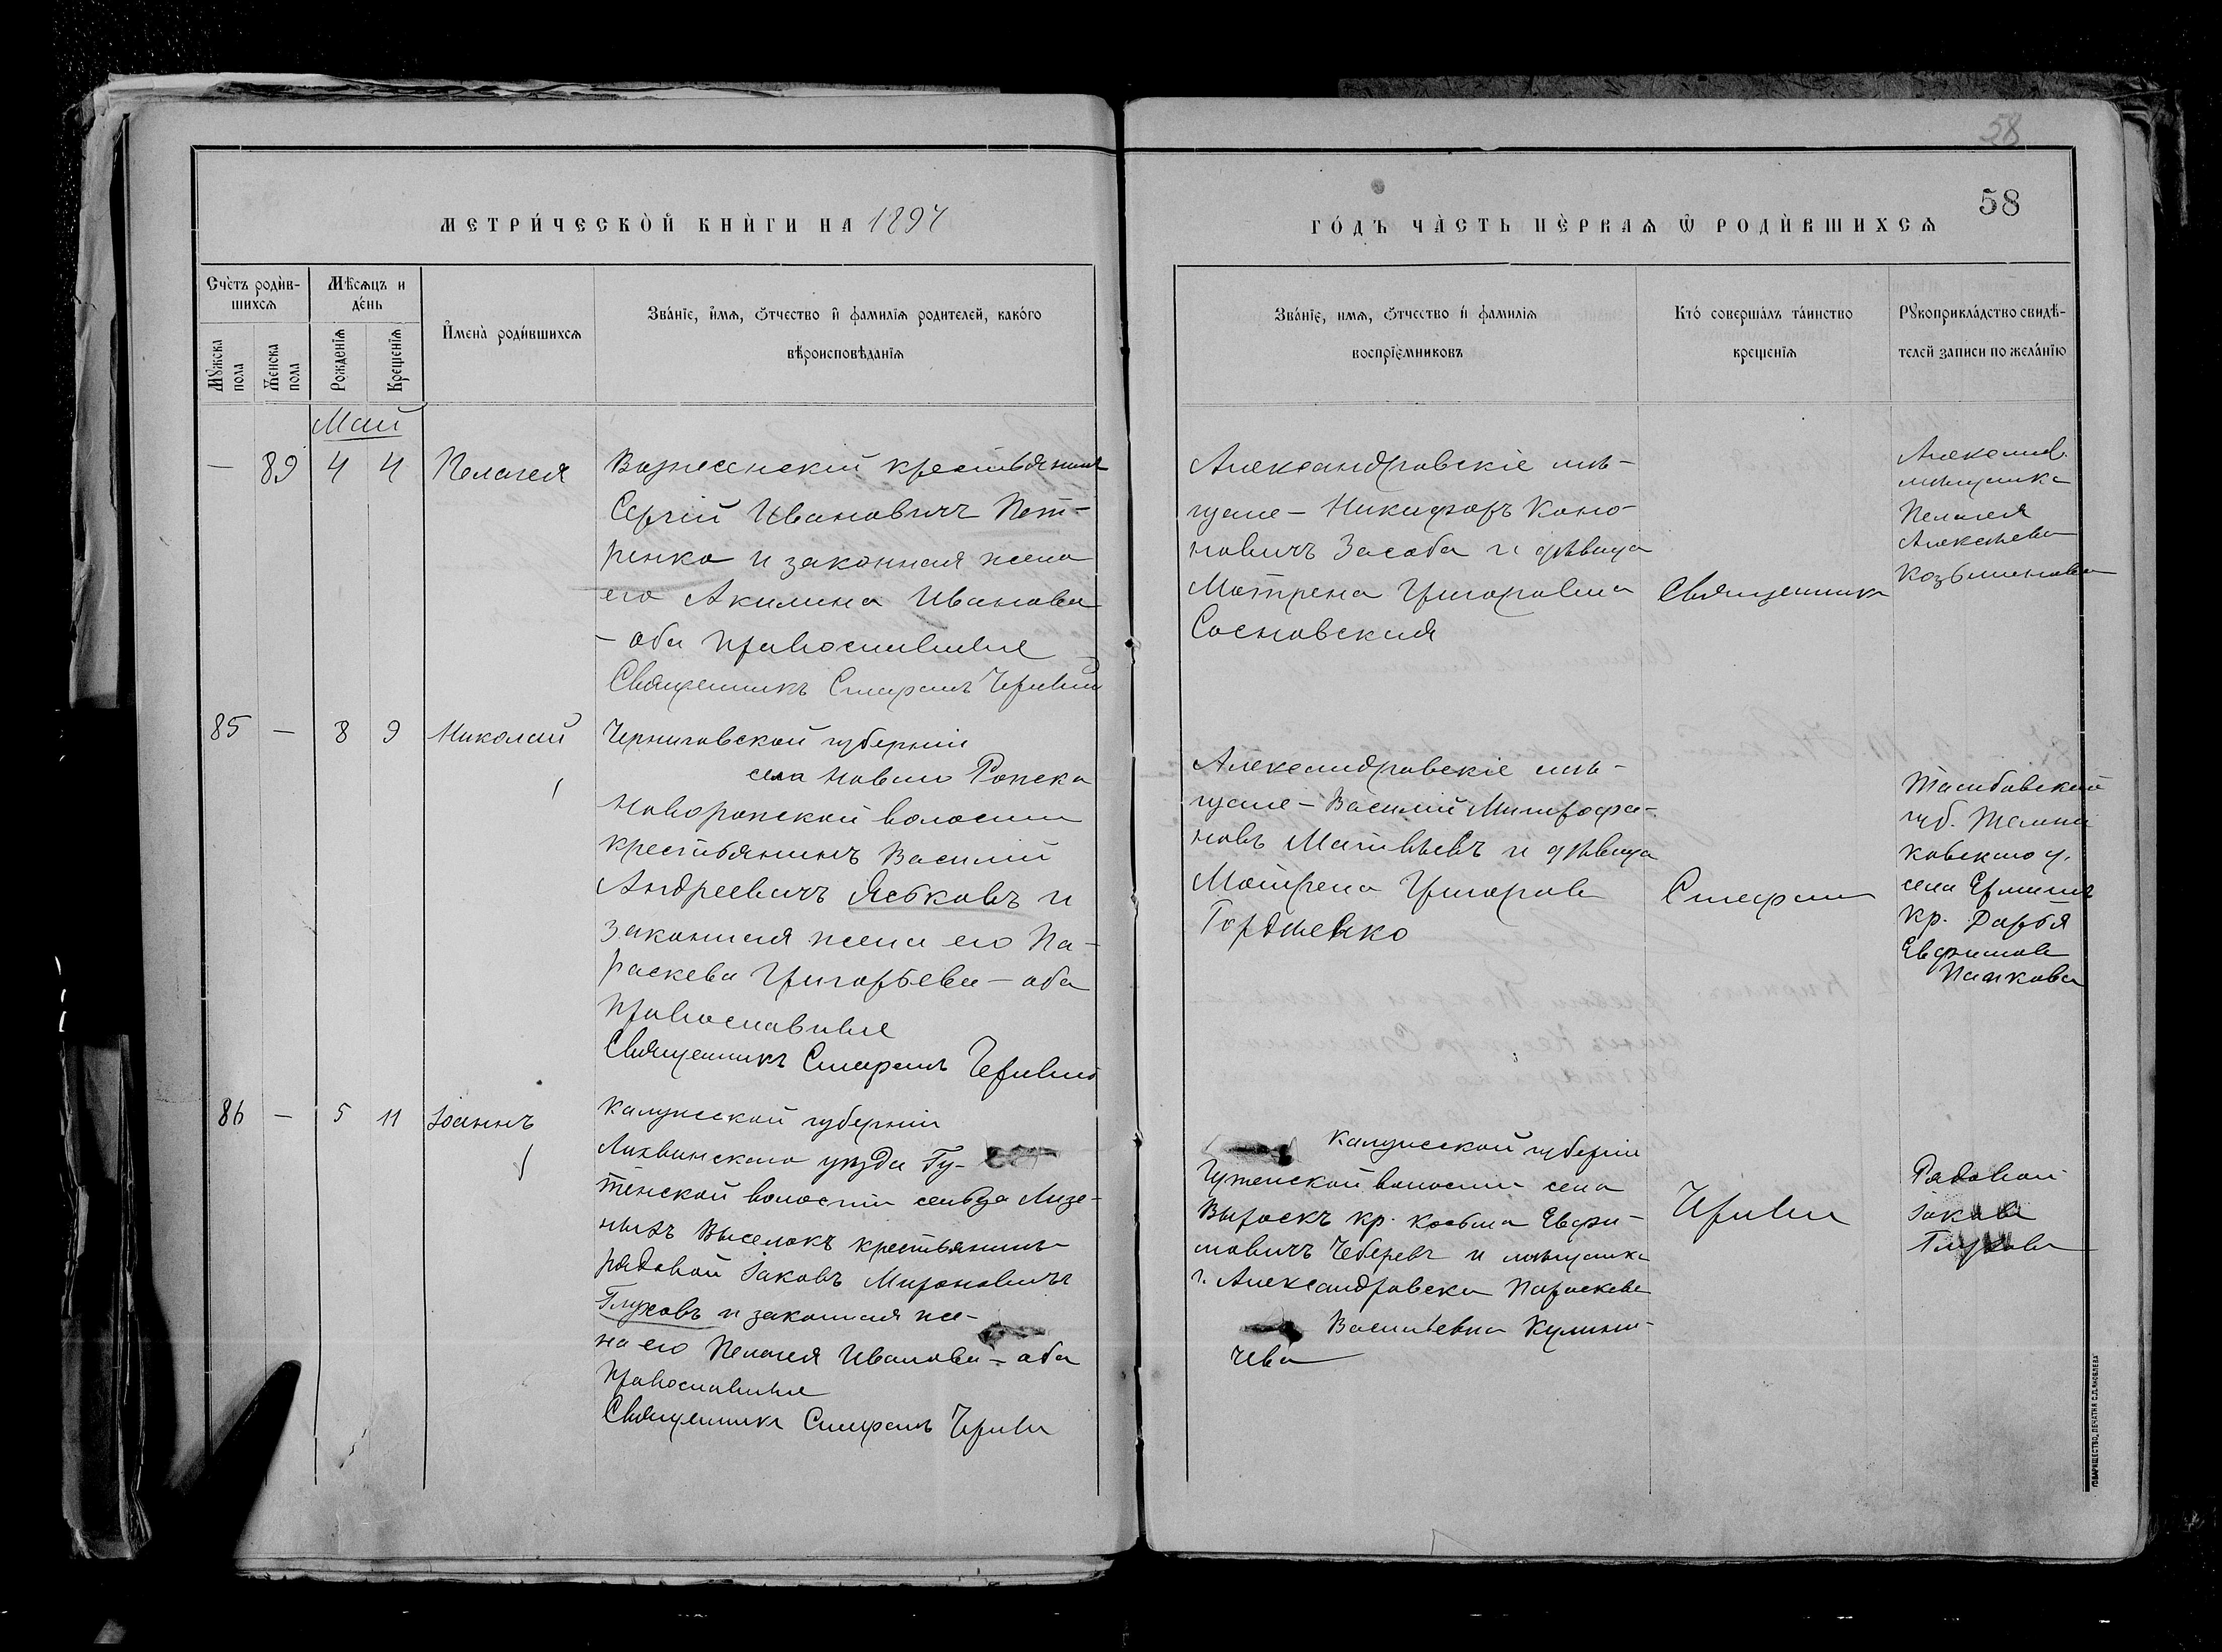 58
58
МЕТРИ́ЧЕСКО̀Й КНЍГИ НА 1897
ГО́ДЪ ЧА̀СТЬ ПЀРВАѦ Ѿ РОДЍВШИХСѦ
Сче́тъ роди́в-
шихсѧ
Мꙋ́жска пола
Же́нска пола
Мѣ́сѧцъ и
де́нь
Рожде́нїѧ
Креще́нїѧ
И҆мена̀ роди́вшихсѧ
Зва́нїе, и҆́мѧ, ѻ҆́тчество и҆ фами́лїѧ роди́телей, како́го
вѣроисповѣ́данїѧ
Зва́нїе, имѧ, ѻ҆́тчество и҆ фами́лїѧ
воспрїе́мниковъ
Кто́ соверша́лъ та́инство
креще́нїѧ
Рꙋкоприкла́дство свидѣ́-
телей записи по жела́нїю
Май
— 89 4 4 Пелагея
Вознесенскій крестьянинъ
Сергій Ивановичъ Пет-
ренко и законная жена
его Акилина Иванова
- оба православные
Священникъ Стефанъ
Александровскіе мѣ-
щане - Никифоръ Коно-
новичъ Засоба и дѣвица
Мотрена Григоровна
Сосновская
Священникъ
Александ.
мѣщанка
Пелагея
Алексѣева
Козьминова
85 — 8 9 Николай
Черниговской губерніи
села Новаго Ропска
Новоропской волости
крестьянинъ Василій
Андреевичъ Ясковъ и
законная жена его Па-
раскева Григорьева - оба
православные
Священникъ Стефанъ
Александровскіе мѣ-
щане - Василій Митрофа-
новъ Матвѣевъ и дѣвица
Мотрена Григорова
Гордиенко
Стефанъ
Тамбовской
губ. Темни
ковскаго у.
села
кр. Дарья
Евфимова
Панкова
86 — 5 11 Іоаннъ
Калужской губерніи
Лихвинскаго уѣзда Гу-
тенской волости сельца
Выселокъ крестьянинъ
рядовой Іаковъ Мироновичъ
Глуховъ и законная же-
на его Пелагея Иванова - оба
православные
Священникъ Стефанъ
Калужской губерніи
волости села
кр. Косьма Евфи-
мовичъ Чеберевъ и мѣщанка
г. Александровска Параскева
Васильевна Кулини-
чева
Рядовой
Іаковъ
Глуховъ
ТОВАРИЩЕСТВО„ПЕЧАТНЯ С.П.ЯКОВЛЕВА"